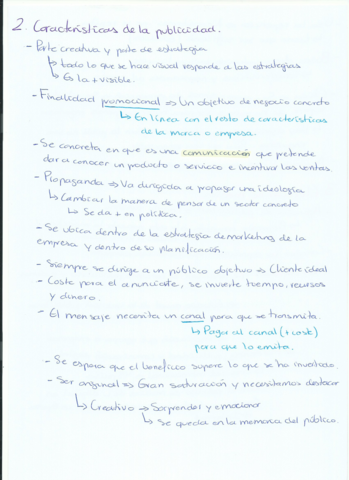 2. Características de la publicidad.
- Parte creativa y parte de estrategia
↳ todo lo que se hace visual responde a las estrategias
↳ Es la + visible.
- Finalidad promocional ⇒ Un objetivo de negocio concreto
↳ En línea con el resto de características
de la marca o empresa.
- Se concreta en que es una comunicación que pretende
dar a conocer un producto o servicio e incentivar las ventas.
- Propaganda ⇒ Va dirigida a propagar una ideología
↳ Cambiar la manera de pensar de un sector concreto
↳ Se da + en política.
- Se ubica dentro de la estrategia de marketing de la
empresa y dentro de su planificación.
- Siempre se dirige a un público objetivo ⇒ Cliente ideal
- Coste para el anunciante, se invierte tiempo, recursos
y dinero.
- El mensaje necesita un canal para que se transmita.
↳ Pagar al canal (+ coste)
para que lo emita.
- Se espera que el beneficio supere lo que se ha invertido.
- Ser original ⇒ Gran saturación y necesitamos destacar
↳ Creativo ⇒ Sorprender y emocionar
↳ Se queda en la memoria del público.